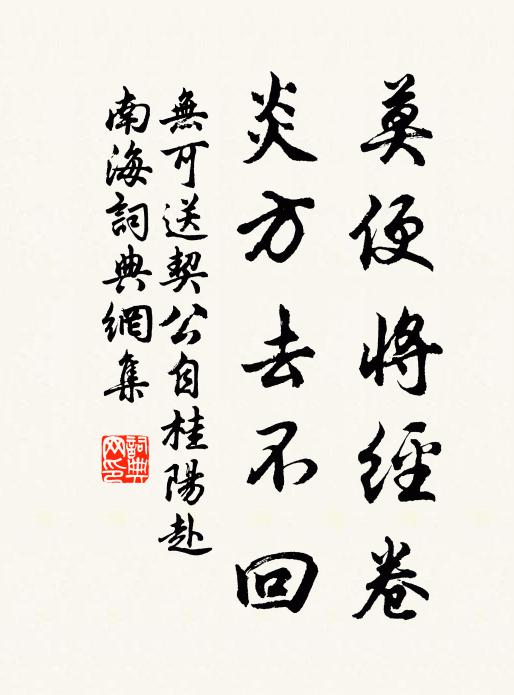 莫便將經卷
炎方去不回
無可送契公自桂陽赴
南海詞典網集
詞典
网印